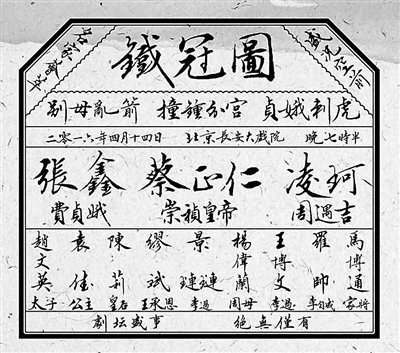 名家薈萃
鐵冠圖
盛況空前
別母亂箭 撞鐘分宮 貞娥刺虎
二零一六年四月十四日 北京長安大戲院 晚七時半
張鑫 蔡正仁 凌珂
費貞娥 崇禎皇帝 周遇吉
趙文英 袁佳 陳莉 繆斌 景漣漣 楊偉蘭 王博文 羅帥 馬博通
太子 公主 皇后 王承恩 李過 周母 李過 李自成 家將
劇坛盛事 絕無僅有